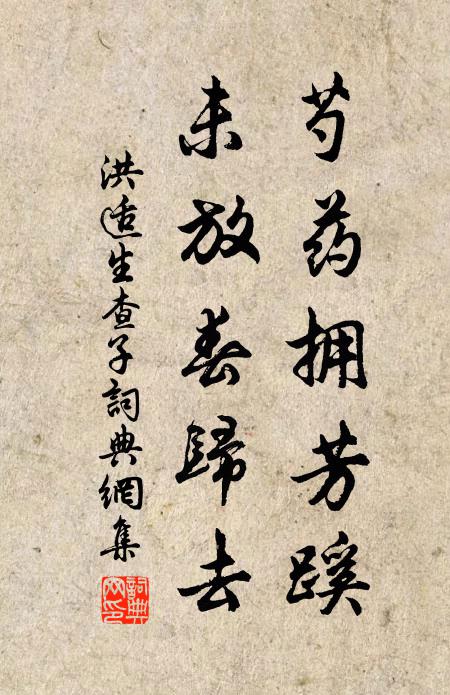 芍药拥芳蹊
未放春歸去
洪适生查子詞典網集
詞典网印